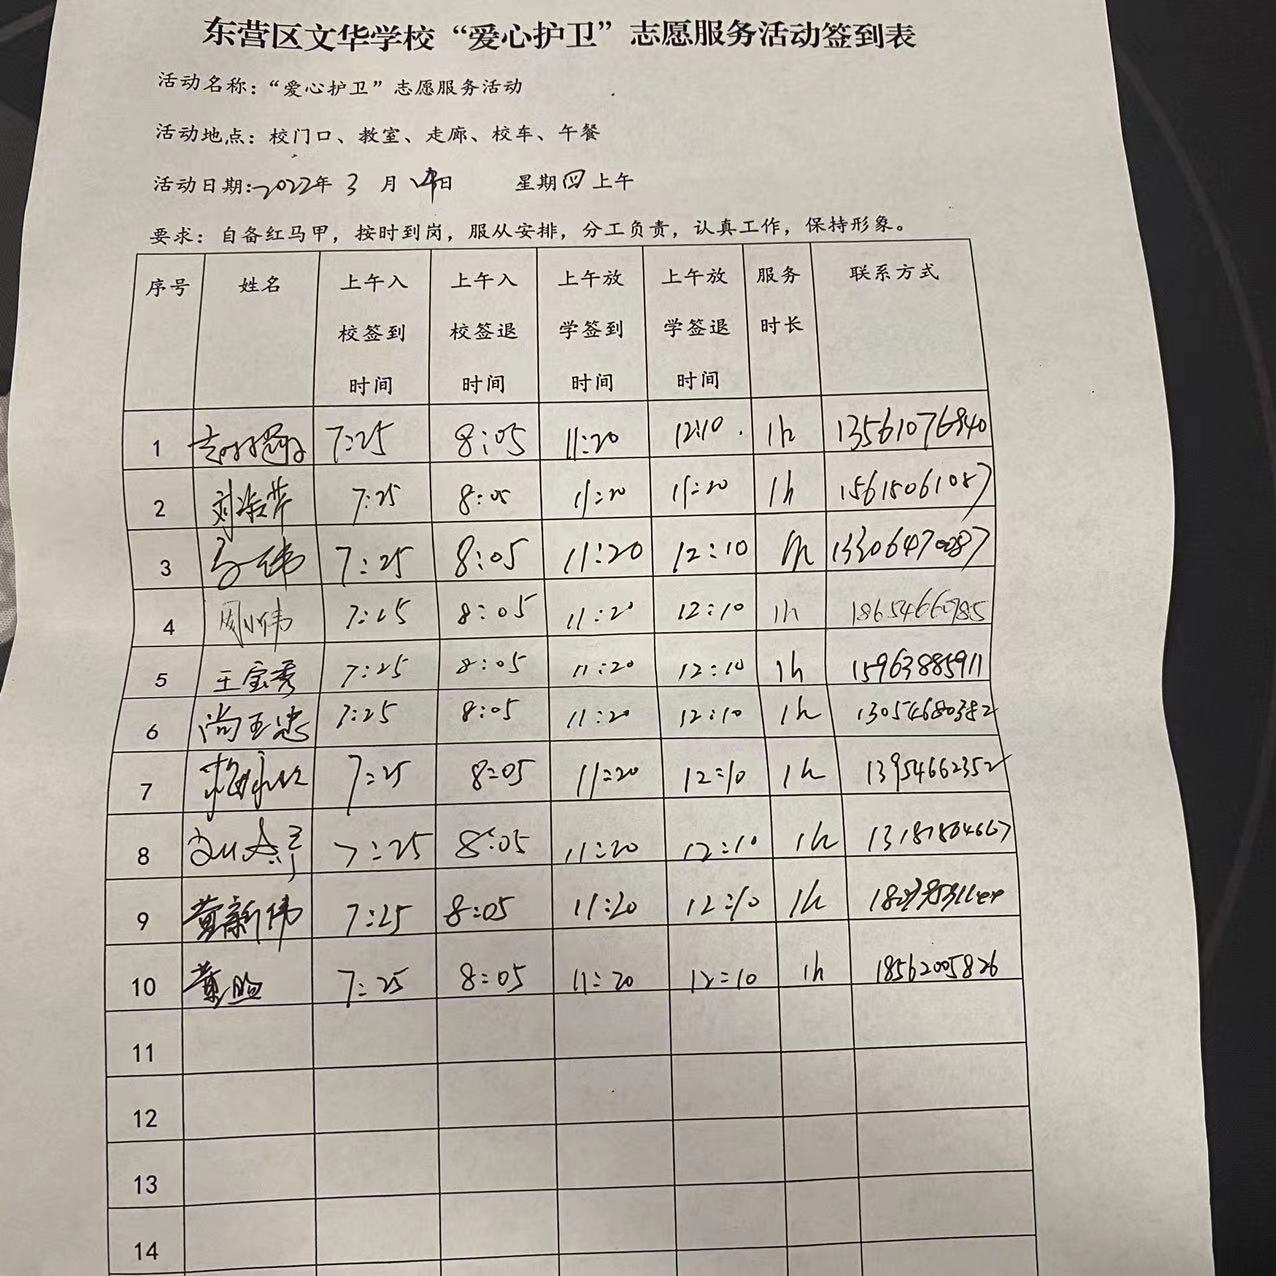 东营区文华学校“爱心护卫”志愿服务活动签到表
活动名称：“爱心护卫”志愿服务活动
活动地点：校门口、教室、走廊、校车、午餐
活动日期：2022年 3 月 日 星期四上午
要求：自备红马甲，按时到岗，服从安排，分工负责，认真工作，保持形象。
序号 姓名 上午入校签到时间 上午入校签退时间 上午放学签到时间 上午放学签退时间 服务时长 联系方式
1 7:25 8:05 11:20 12:10 1h 13561076940
2 7:25 8:05 11:20 11:20 1h 15615061087
3 7:25 8:05 11:20 12:10 1h 13306470087
4 周小伟 7:25 8:05 11:20 12:10 1h
5 王宝秀 7:25 8:05 11:20 12:10 1h 15963885911
6 尚玉忠 7:25 8:05 11:20 12:10 1h 13054680382
7 7:25 8:05 11:20 12:10 1h 13954662352
8 7:25 8:05 11:20 12:10 1h 13181804667
9 黄新伟 7:25 8:05 11:20 12:10 1h
10 7:25 8:05 11:20 12:10 1h 18562005826
11
12
13
14